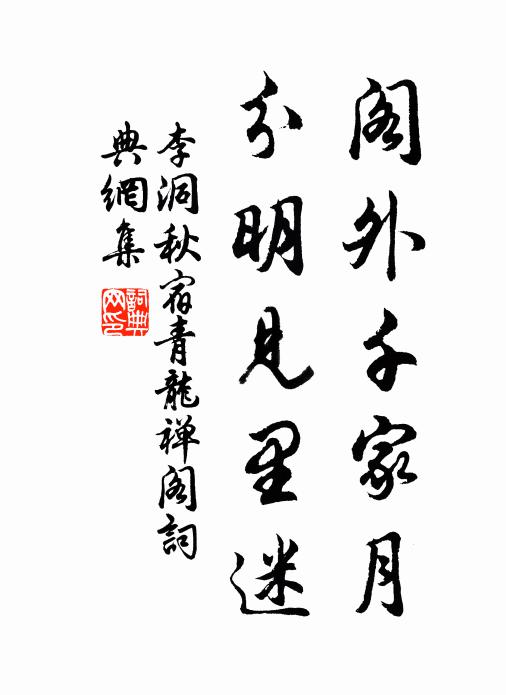 阁外千家月
分明见里迷
李洞秋宿青龍禅阁詞
典網集
詞典网印